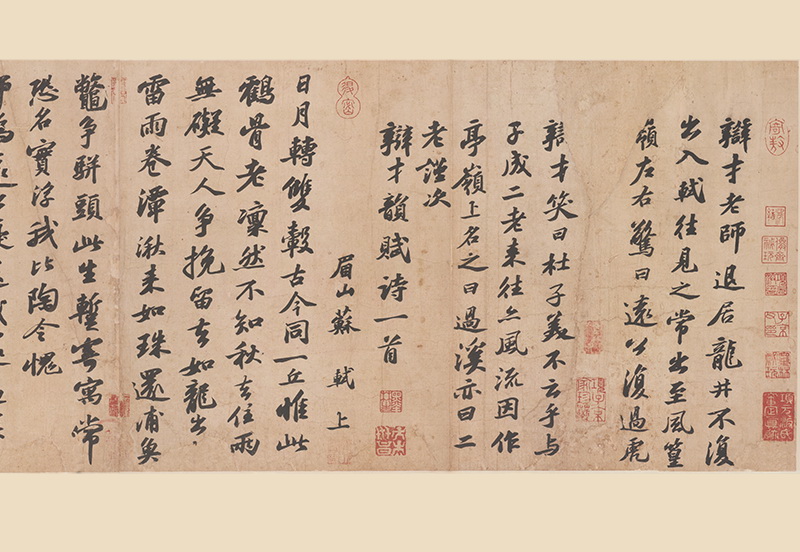 辯才老師退居龍井不復
出入軾往見之常出至風篁
嶺左右驚曰遠公復過虎
辯才笑曰杜子美不云乎与
子成二老來往亦風流因作
亭嶺上名之曰過溪亦曰二
老謹次
辯才韻賦詩一首
眉山蘇軾上
日月轉雙轂古今同一丘惟此
鶴骨老凜然不知秋去住兩
無礙天人爭挽留去如龍出
雷雨卷潭湫來如珠還浦魚
鼈爭駢頭此生暫寄寓常
恐名實浮我比陶令愧